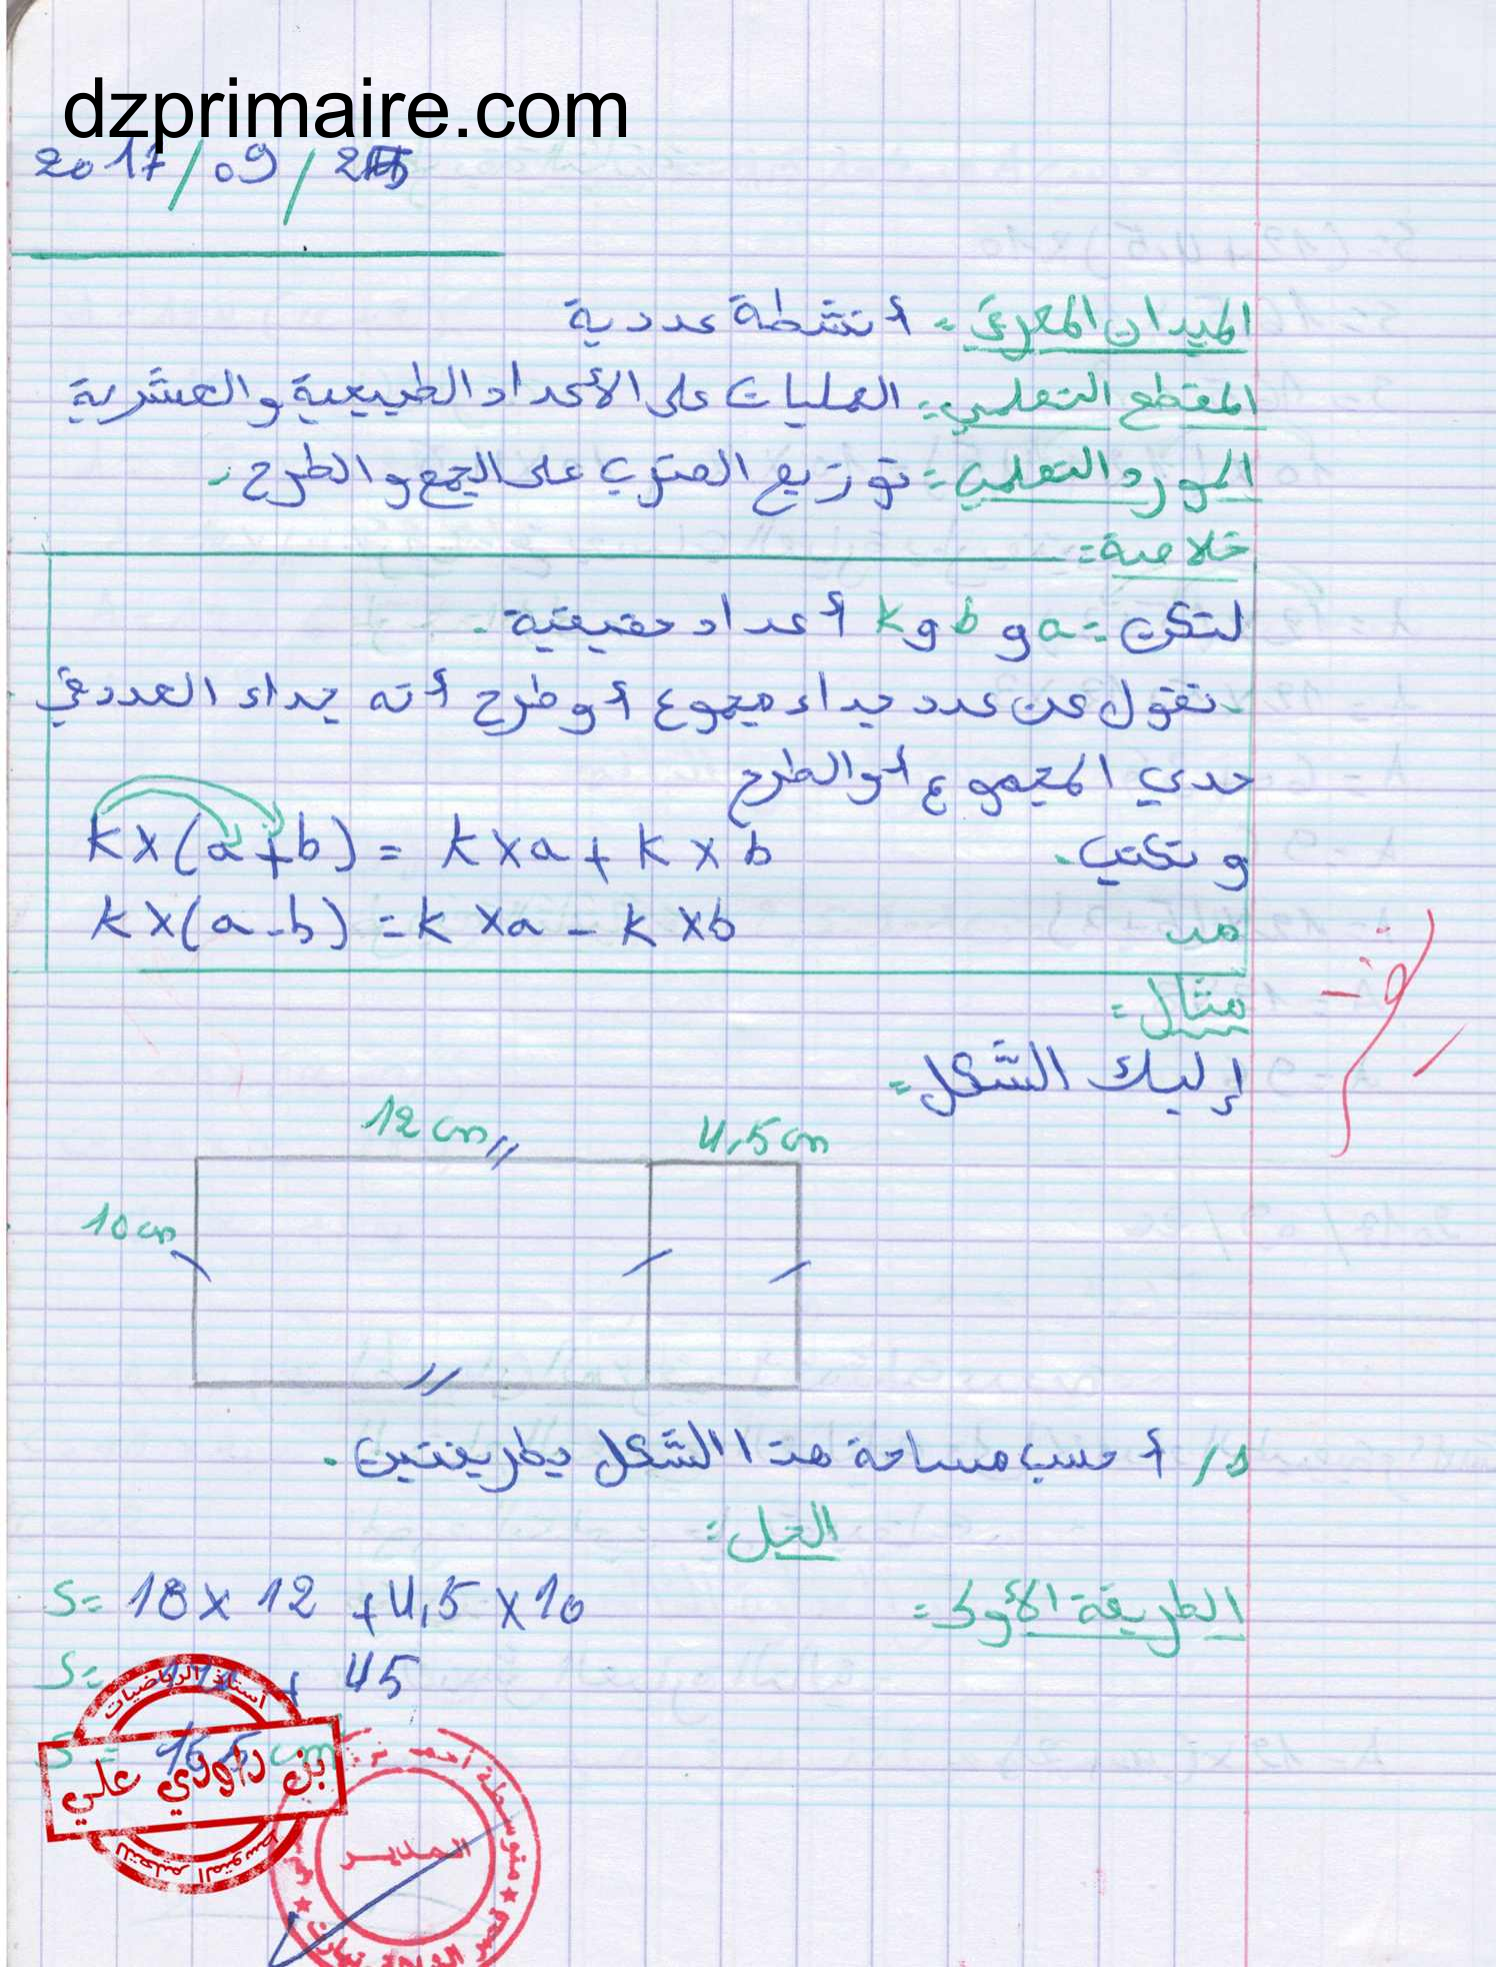 dzprimaire.com
2017/09/25
الميدان المعرفي: أنشطة عددية
المقطع التعلمي: العمليات على الأعداد الطبيعية والعشرية
المورد التعلمي: توزيع الضرب على الجمع والطرح.
خلاصة:
لتكن: a و b و k أعداد حقيقية.
نقول عن عدد جداء مجموع أو طرح أنه جداء العدد في
حدي المجموع أو الطرح
ونكتب. k×(a+b) = k×a + k×b
k×(a-b) = k×a - k×b
مثال:
إليك الشكل:
12 cm
4,5 cm
10 cm
1/ أحسب مساحة هذا الشكل بطريقتين.
الحل:
الطريقة الأولى: S= 10×12 +4,5×10
S= + 45
S = 165 cm
أستاذ الرياضيات
بن داودي علي
للتعليم المتوسط
متوسطة أحمد
المدير